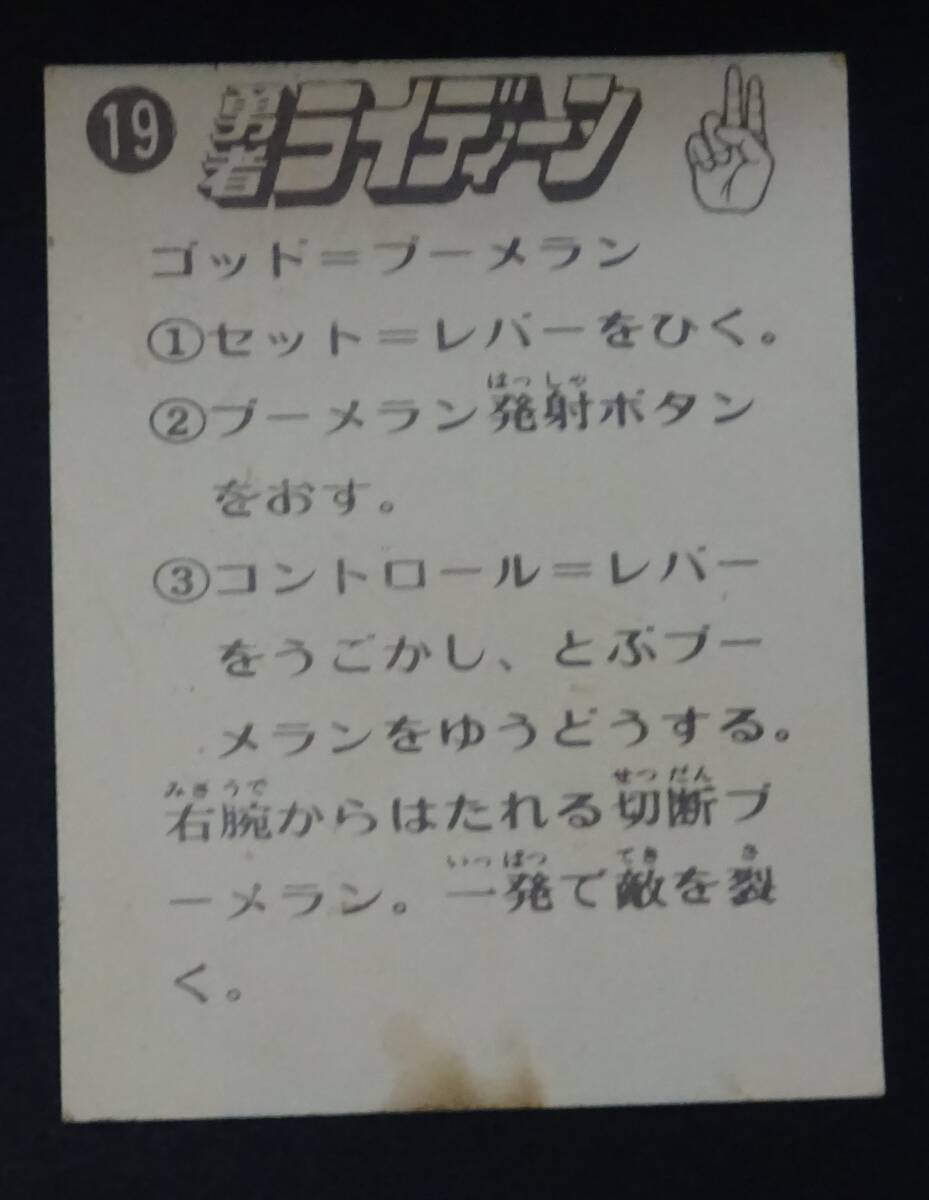 19
勇者ライディーン
ゴッド＝ブーメラン
①セット＝レバーをひく。
はっしゃ
②ブーメラン発射ボタン
をおす。
③コントロール＝レバー
をうごかし、とぶブー
メランをゆうどうする。
みぎうで せつだん
右腕からはなれる切断ブ
いっぱつ てき さ
ーメラン。一発で敵を裂
く。